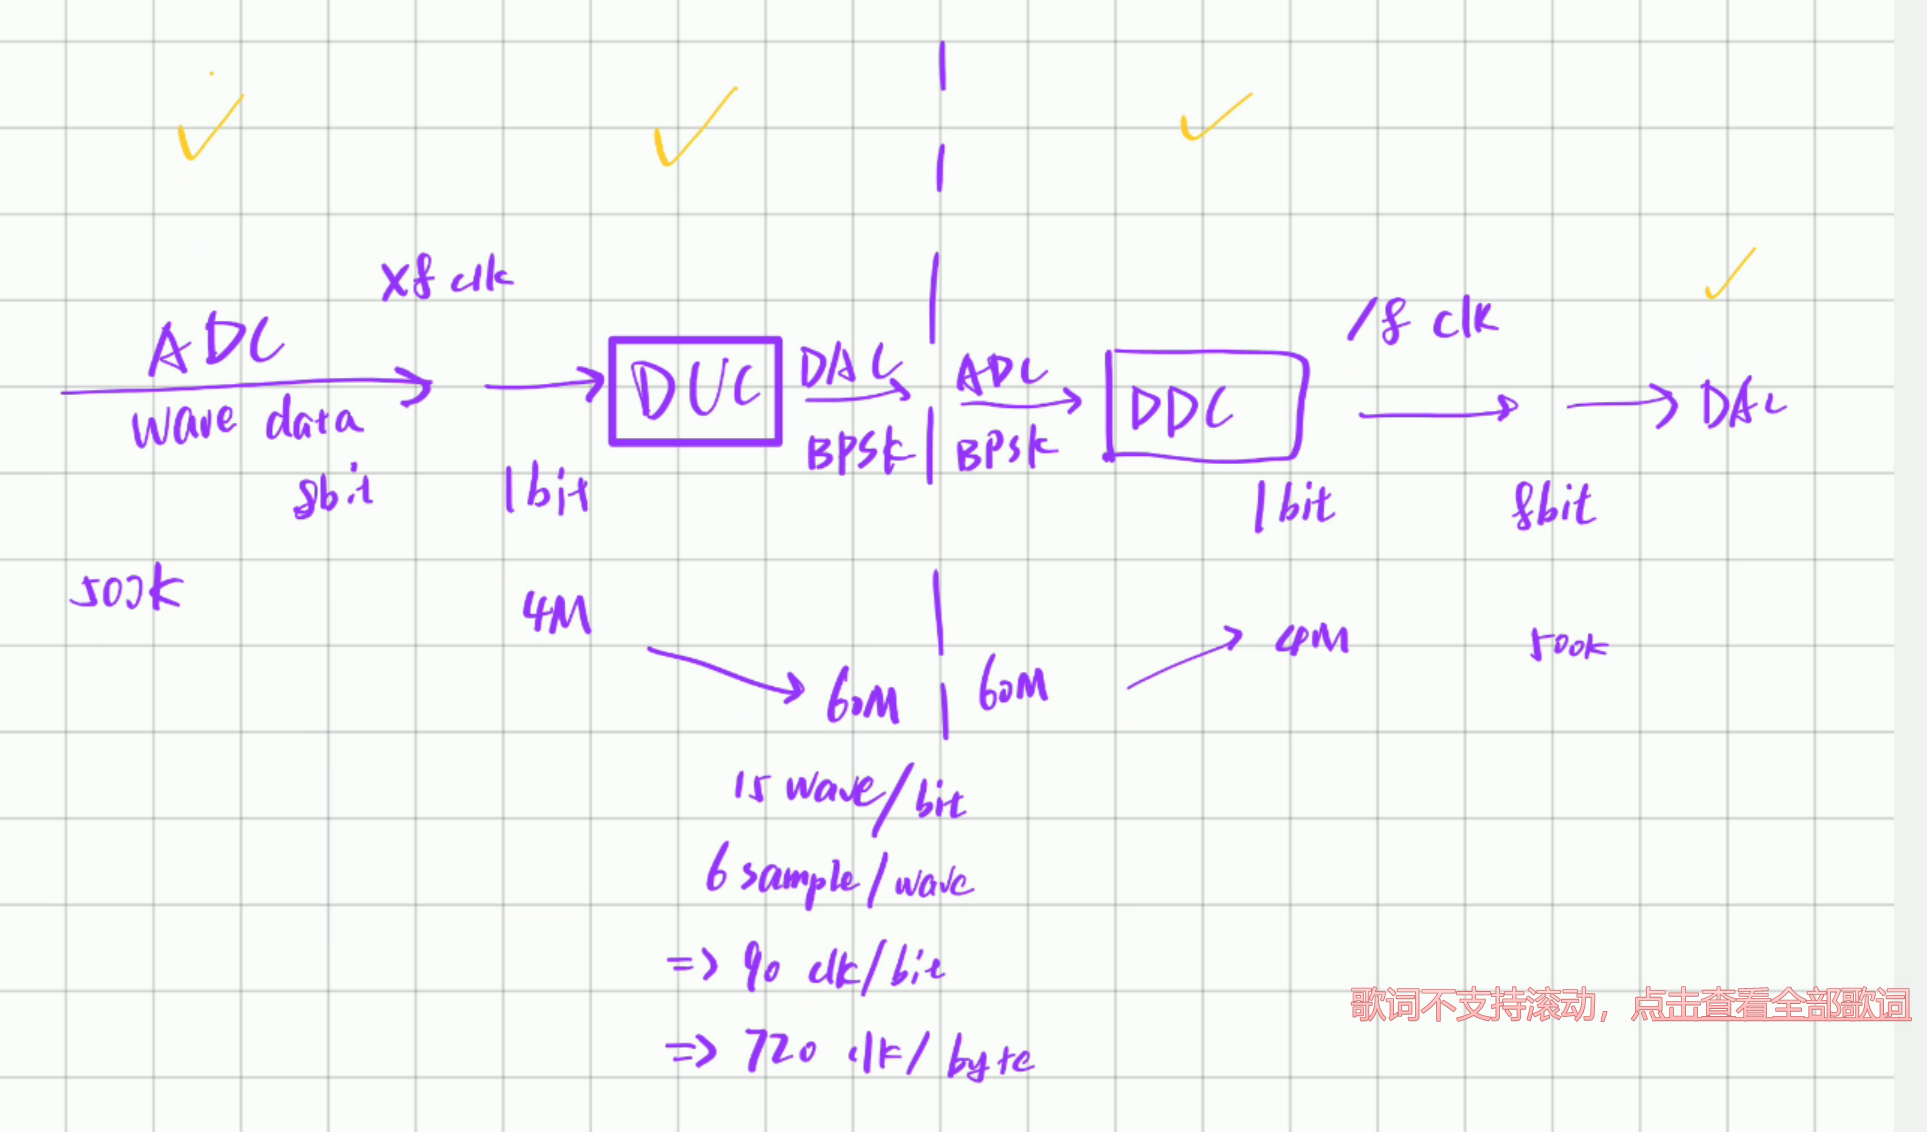 x8 clk
ADC
wave data
8bit
1bit
DUC
DAC
BPSK
ADC
BPSK
DDC
/8 clk
DAC
1bit
8bit
500k
4M
60M
60M
4M
500k
15 wave/bit
6 sample/wave
=> 90 clk/bit
=> 720 clk/byte
歌词不支持滚动，点击查看全部歌词